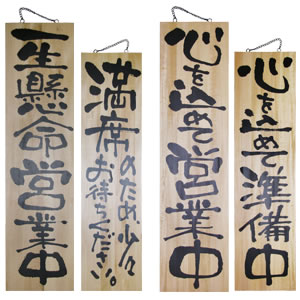 一生懸命営業中
満席のため少々
お待ちください。
心を込めて営業中
心を込めて準備中